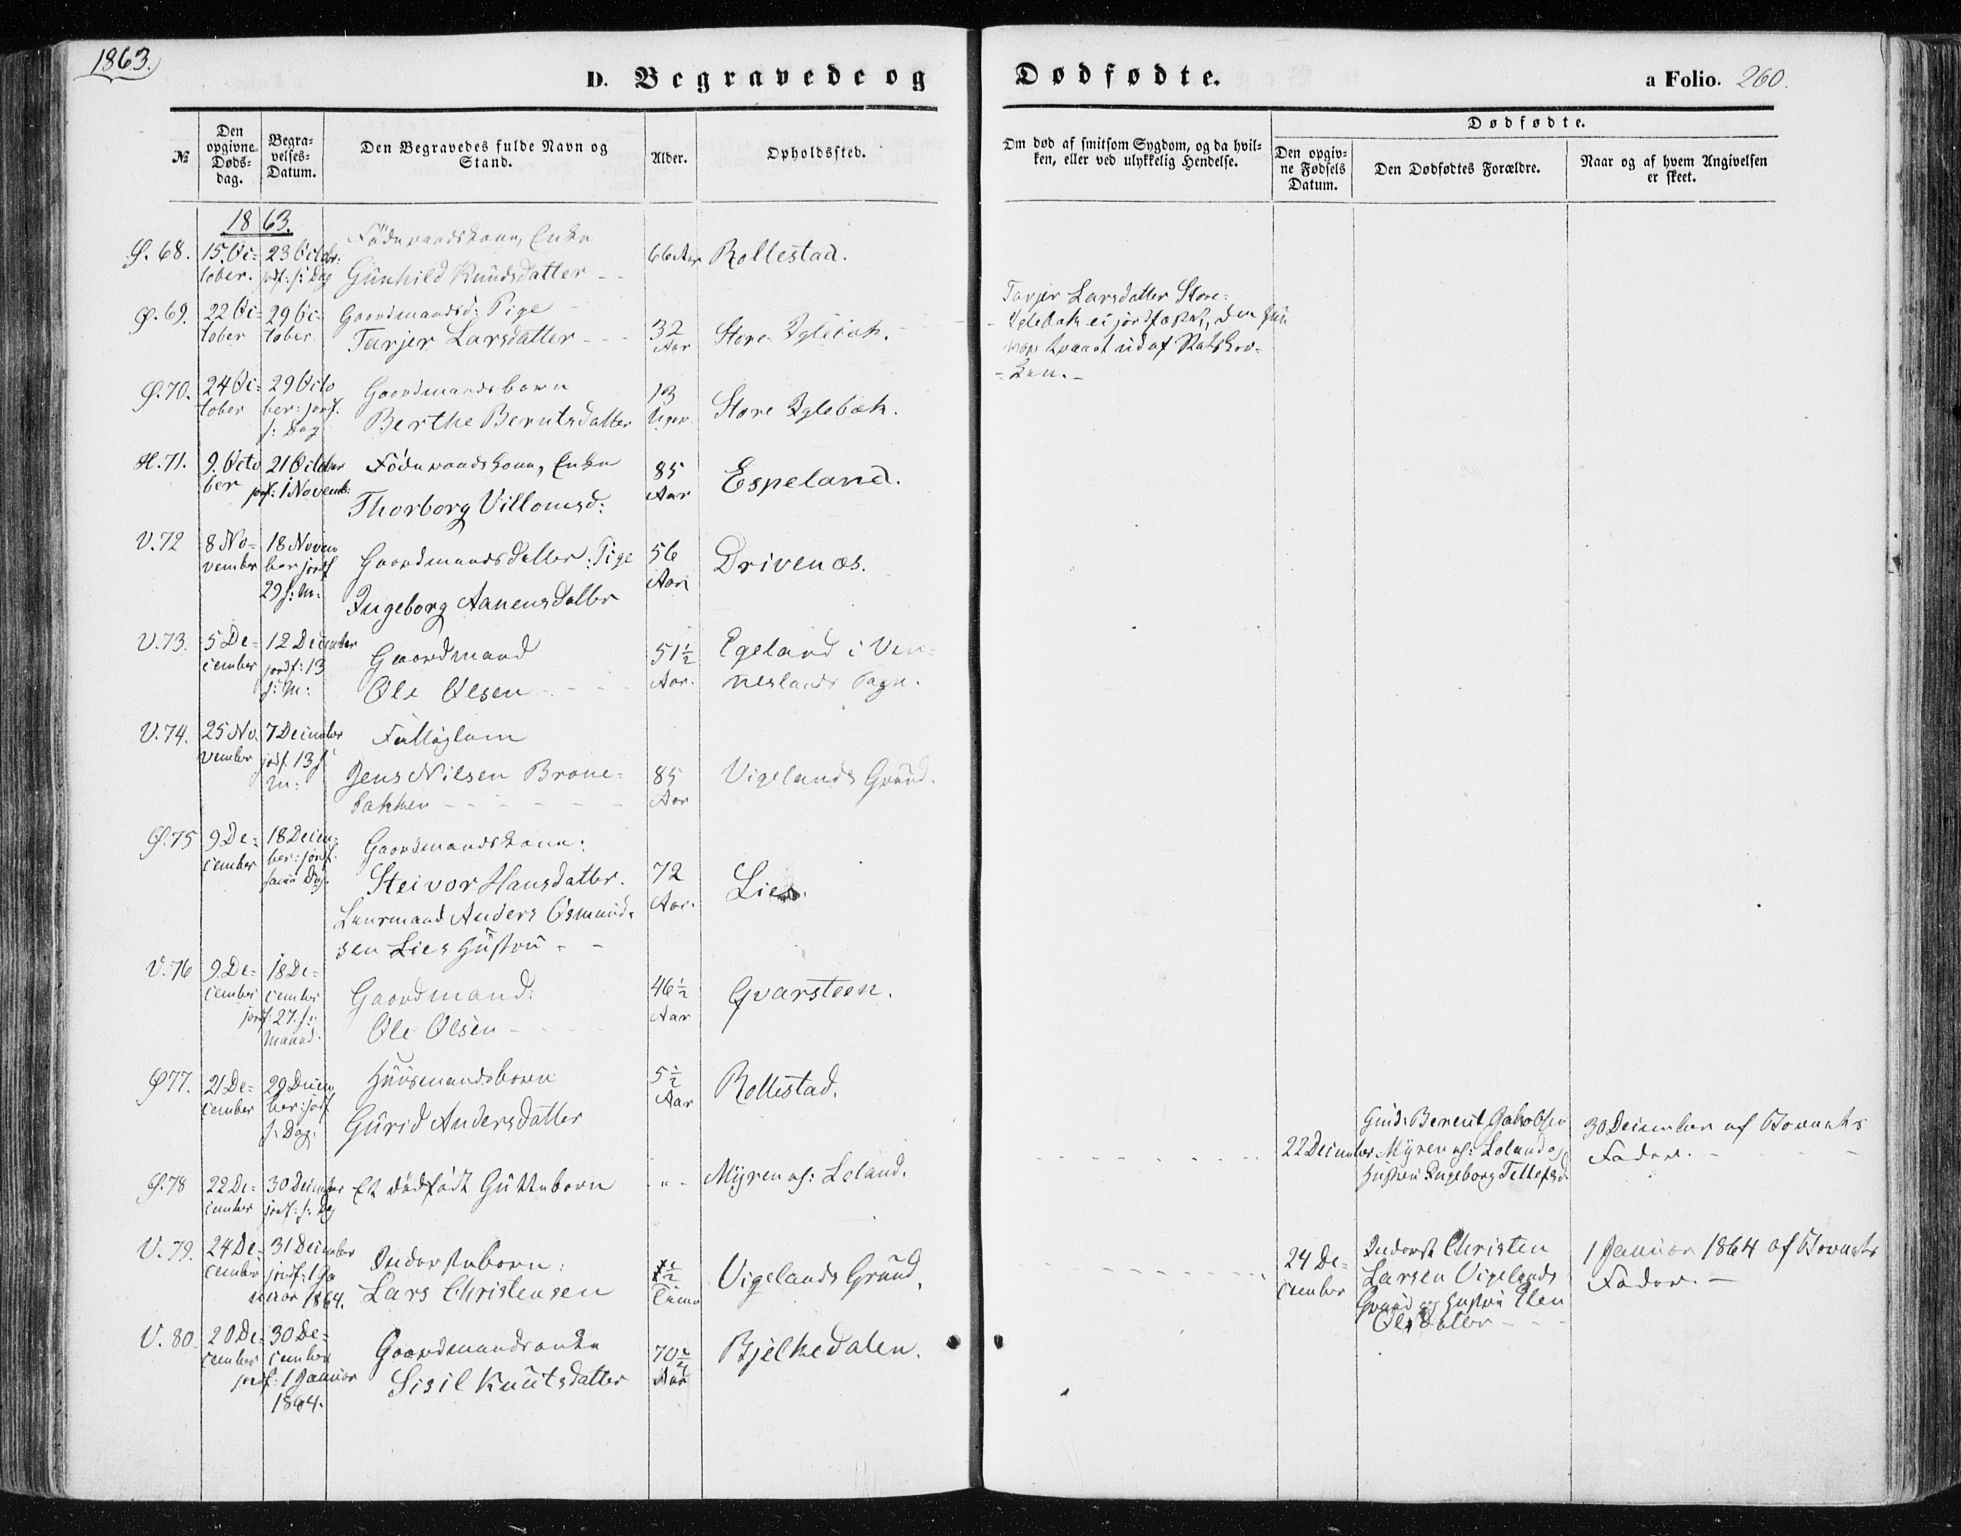 1863.
D. Begravede og Dødfødte.
a Folio. 260.
№
Den opgivne Døds-dag.
Begra-velses-Datum.
Den Begravedes fulde Navn og Stand.
Alder.
Opholdssted.
Om død af smitsom Sygdom, og da hvil-ken, eller ved ulykkelig Hendelse.
Dødfødte.
Den opgiv-ne Fødsels Datum.
Den Dødfødtes Forældre.
Naar og af hvem Angivelsen er skeet.
1863.
Ø. 68.
15. Oc-
tober.
23 Octobr.
jordf: s: Dag
Föderaadskone, Enke
Gunhild Knudsdatter
66 Aar
Rollestad.
Ø. 69.
22 Oc-
tober
29 Oc-
tober
Gaardmandsd: Pige
Tarjer Larsdatter
32
Aar
Store Iglebæk.
Tarjer Larsdatter Store-
Iglebæk ei jordfæstet, den
Ø. 70.
24 Oc-
tober
29 Octo
ber: jordf.
s: Dag
Gaardmandsbarn
Berthe Berntsdatter
13
Uger.
Store Iglebæk.
H. 71.
9. Octo
ber
21 October
jordf: 1 Novemb:
Föderaadskone, Enke
Thorborg Villomsd:
85
Aar
Espeland.
V. 72
8 No-
vember
18 Novem
ber jordf
29 s: M:
Gaardmandsdatter: Pige
Ingeborg Aanensdatter
56
Aar
Drivenæs.
V. 73.
5 De-
cember
12 December
jordf: 13
s: M:
Gaardmand
Ole Olsen
51½
Aar.
Egeland i Ven-
neslands Sogn.
V. 74.
25 No
vember
7 December
jodf. 13 s
M:
Fattiglem
Jens Nilsen Brone-
bakken
85
Aar
Vigelands Grund.
Ø. 75
9 De-
cember
18 Decem-
ber: jordf.
samme Dag.
Gaardmandskone:
Steivor Hansdatter.
Leensmand Anders Osmund-
sen Lies Hustru
72
Aar.
Lie
V. 76
9 De-
cember
18 De-
cember
jordf 27. s:
Maaned.
Gaardmand:
Ole Olsen
46½
Aar
Qvarsteen.
Ø 77.
21 De-
cember
29 Decem
ber: jordf
s: Dag.
Huusmandsbarn
Gurid Andersdatter
5½
Aar
Rollestad.
Ø. 78
22 De-
cember
30 December
jordf: s: Dag
Et dødfødt Guttebarn
- " -
Myren af: Loland.
22 December
Bereut Jakobsen
Myren af: Loland og
Hustru Ingeborg Tellefsd
30 December af Barnets
Fader.
V. 79.
24 De-
cember
31 December
jordf: 1 Ja
nuar 1864.
Inderstebarn:
Lars Christensen
½
Time
Vigelands Grund.
24 De-
cember
Inderst Christen
Larsen Vigelands
Grund og Hustru Elen
Olsdatter
1 Januar 1864 af Barnets
Fader.
V. 80
20 De-
cember
30 De-
cember
jordf: 1 Januar
1864.
Gaardmandsenke
Sisil Knutsdatter
70½
Aar
Bjelkedalen.